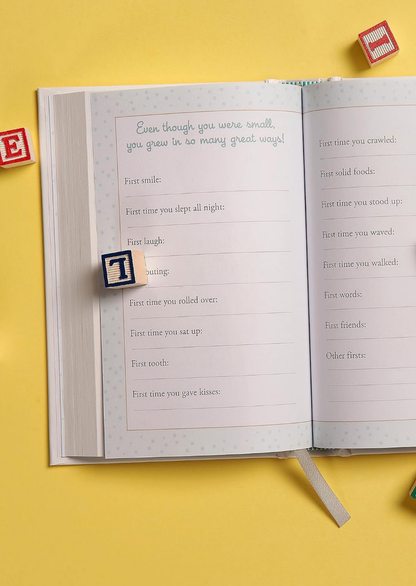 Even though you were small,
you grew in so many great ways!
First smile:
First time you slept all night:
First laugh:
outing:
First time you rolled over:
First time you sat up:
First tooth:
First time you gave kisses:
First time you crawled:
First solid foods:
First time you stood up:
First time you waved:
First time you walked:
First words:
First friends:
Other firsts:
E
T